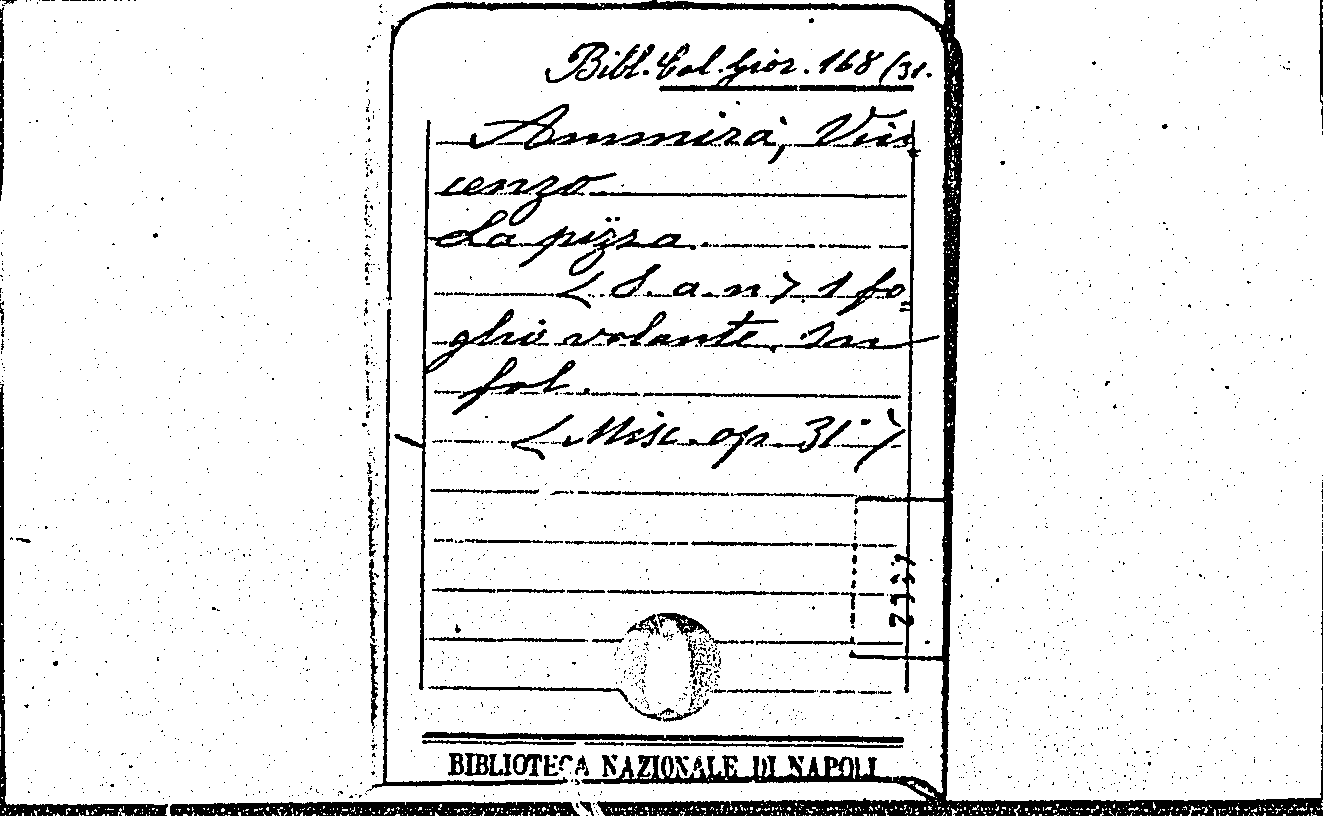 Bibl. Cal. Gior. 168 (31.
Ammirà, Vin=
cenzo
La pizza.
< S. a. n > 1 fo=
glio volante. In
fol.
< Misc. op. 31° >
BIBLIOTECA NAZIONALE DI NAPOLI